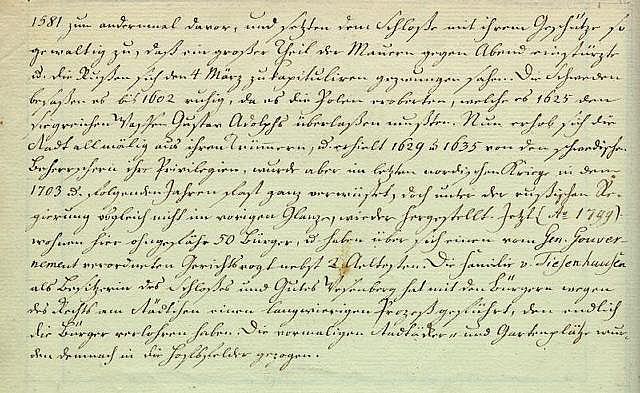 1581 zum andermal davor, und setzten dem Schloße mit ihrem Geschütze so
gewaltig zu, daß ein großer Theil der Mauern gegen Abend einstürzte
u. die Rußen sich den 4 März zu kapituliren gezwungen sahen. Die Schweden
besaßen es bis 1602 ruhig, da es die Polen eroberten, welche es 1625 den
siegreichen Waffen Gustav Adolphs überlaßen mußten. Nun erhob sich die
Stadt allmälig aus ihren Trümern, u. erhielt 1629 u 1635 von den schwedischen
Beherrschern ihre Privilegien, wurde aber im letzten nordischen Kriege in dem
1703 u. folgenden Jahren fast ganz verwüstet, doch unter der rußischen Re-
gierung obgleich nicht im vorigen Glanze, wieder hergestellt. Jetzt (Ao 1799)
wohnen hier ohngefähr 50 Bürger, u. haben über sich einen vom Gen. Gouver-
nement verordneten Gerichtsvogt nebst 2 Aeltesten. Die Familie v. Tiesenhausen
als Besitzerin des Schloßes und Gutes Wesenberg hat mit den Bürgern wegen
des Rechts am Städtchen einen langwierigen Prozeß geführt, den endlich
die Bürger verlohren haben. Die vormaligen Stadtäcker- und Gartenplätze wur-
den demnach in die Hofsfelder gezogen.